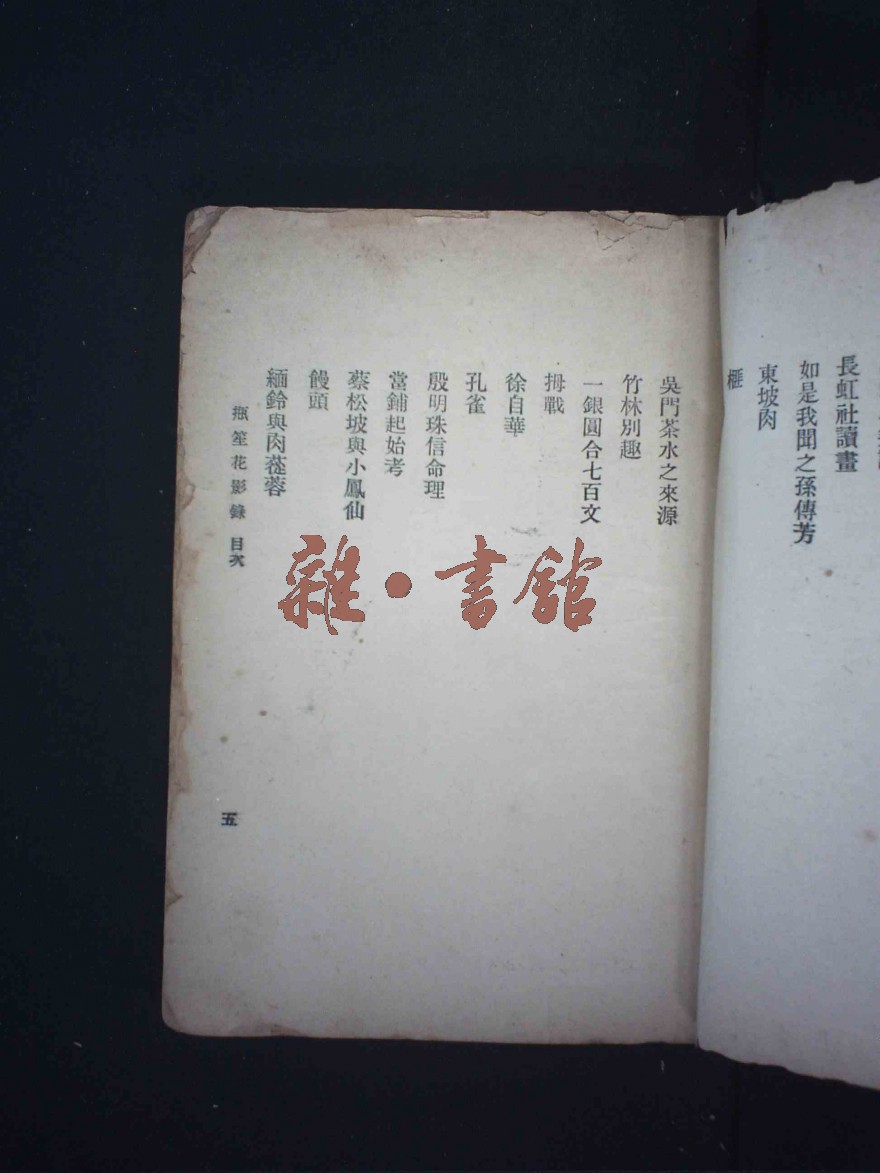 長虹社讀畫
如是我聞之孫傳芳
東坡肉
榧
吳門茶水之來源
竹林別趣
一銀圓合七百文
拇戰
徐自華
孔雀
殷明珠信命理
當鋪起始考
蔡松坡與小鳳仙
饅頭
緬鈴與肉蓯蓉
瓶笙花影錄 目次
五
雜·書館